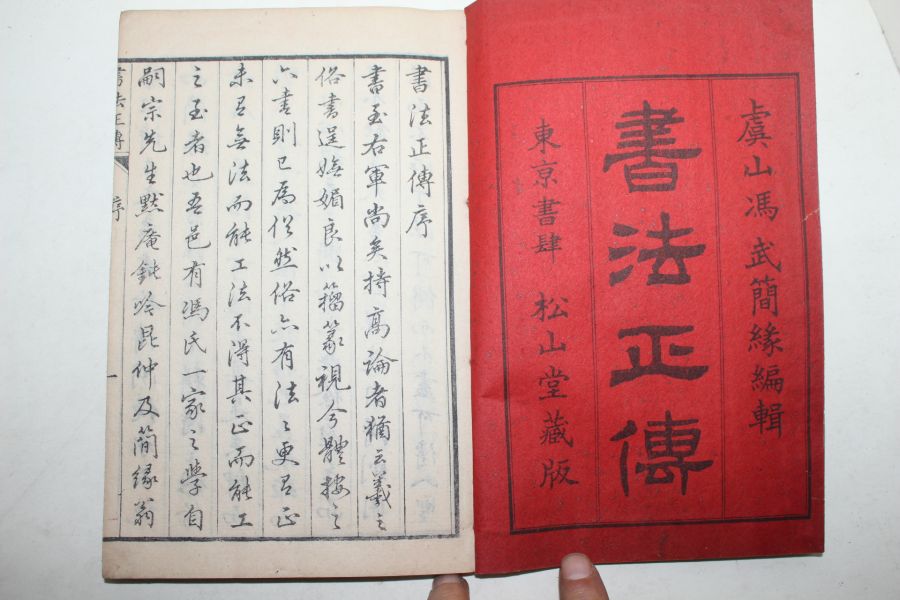 虞山馮武簡緣編輯
書法正傳
東京書肆 松山堂藏版
書法正傳序
書至右軍尚矣持高論者猶云羲之
俗書逞嫵媚良以籀篆視今體按之
六書則已為俗然俗亦有法之更有正
未有無法而能工法不得其正而能工
之至者也吾邑有馮氏一家之學自
嗣宗先生默庵鈍吟昆仲及簡緣翁
書法正傳
序
一